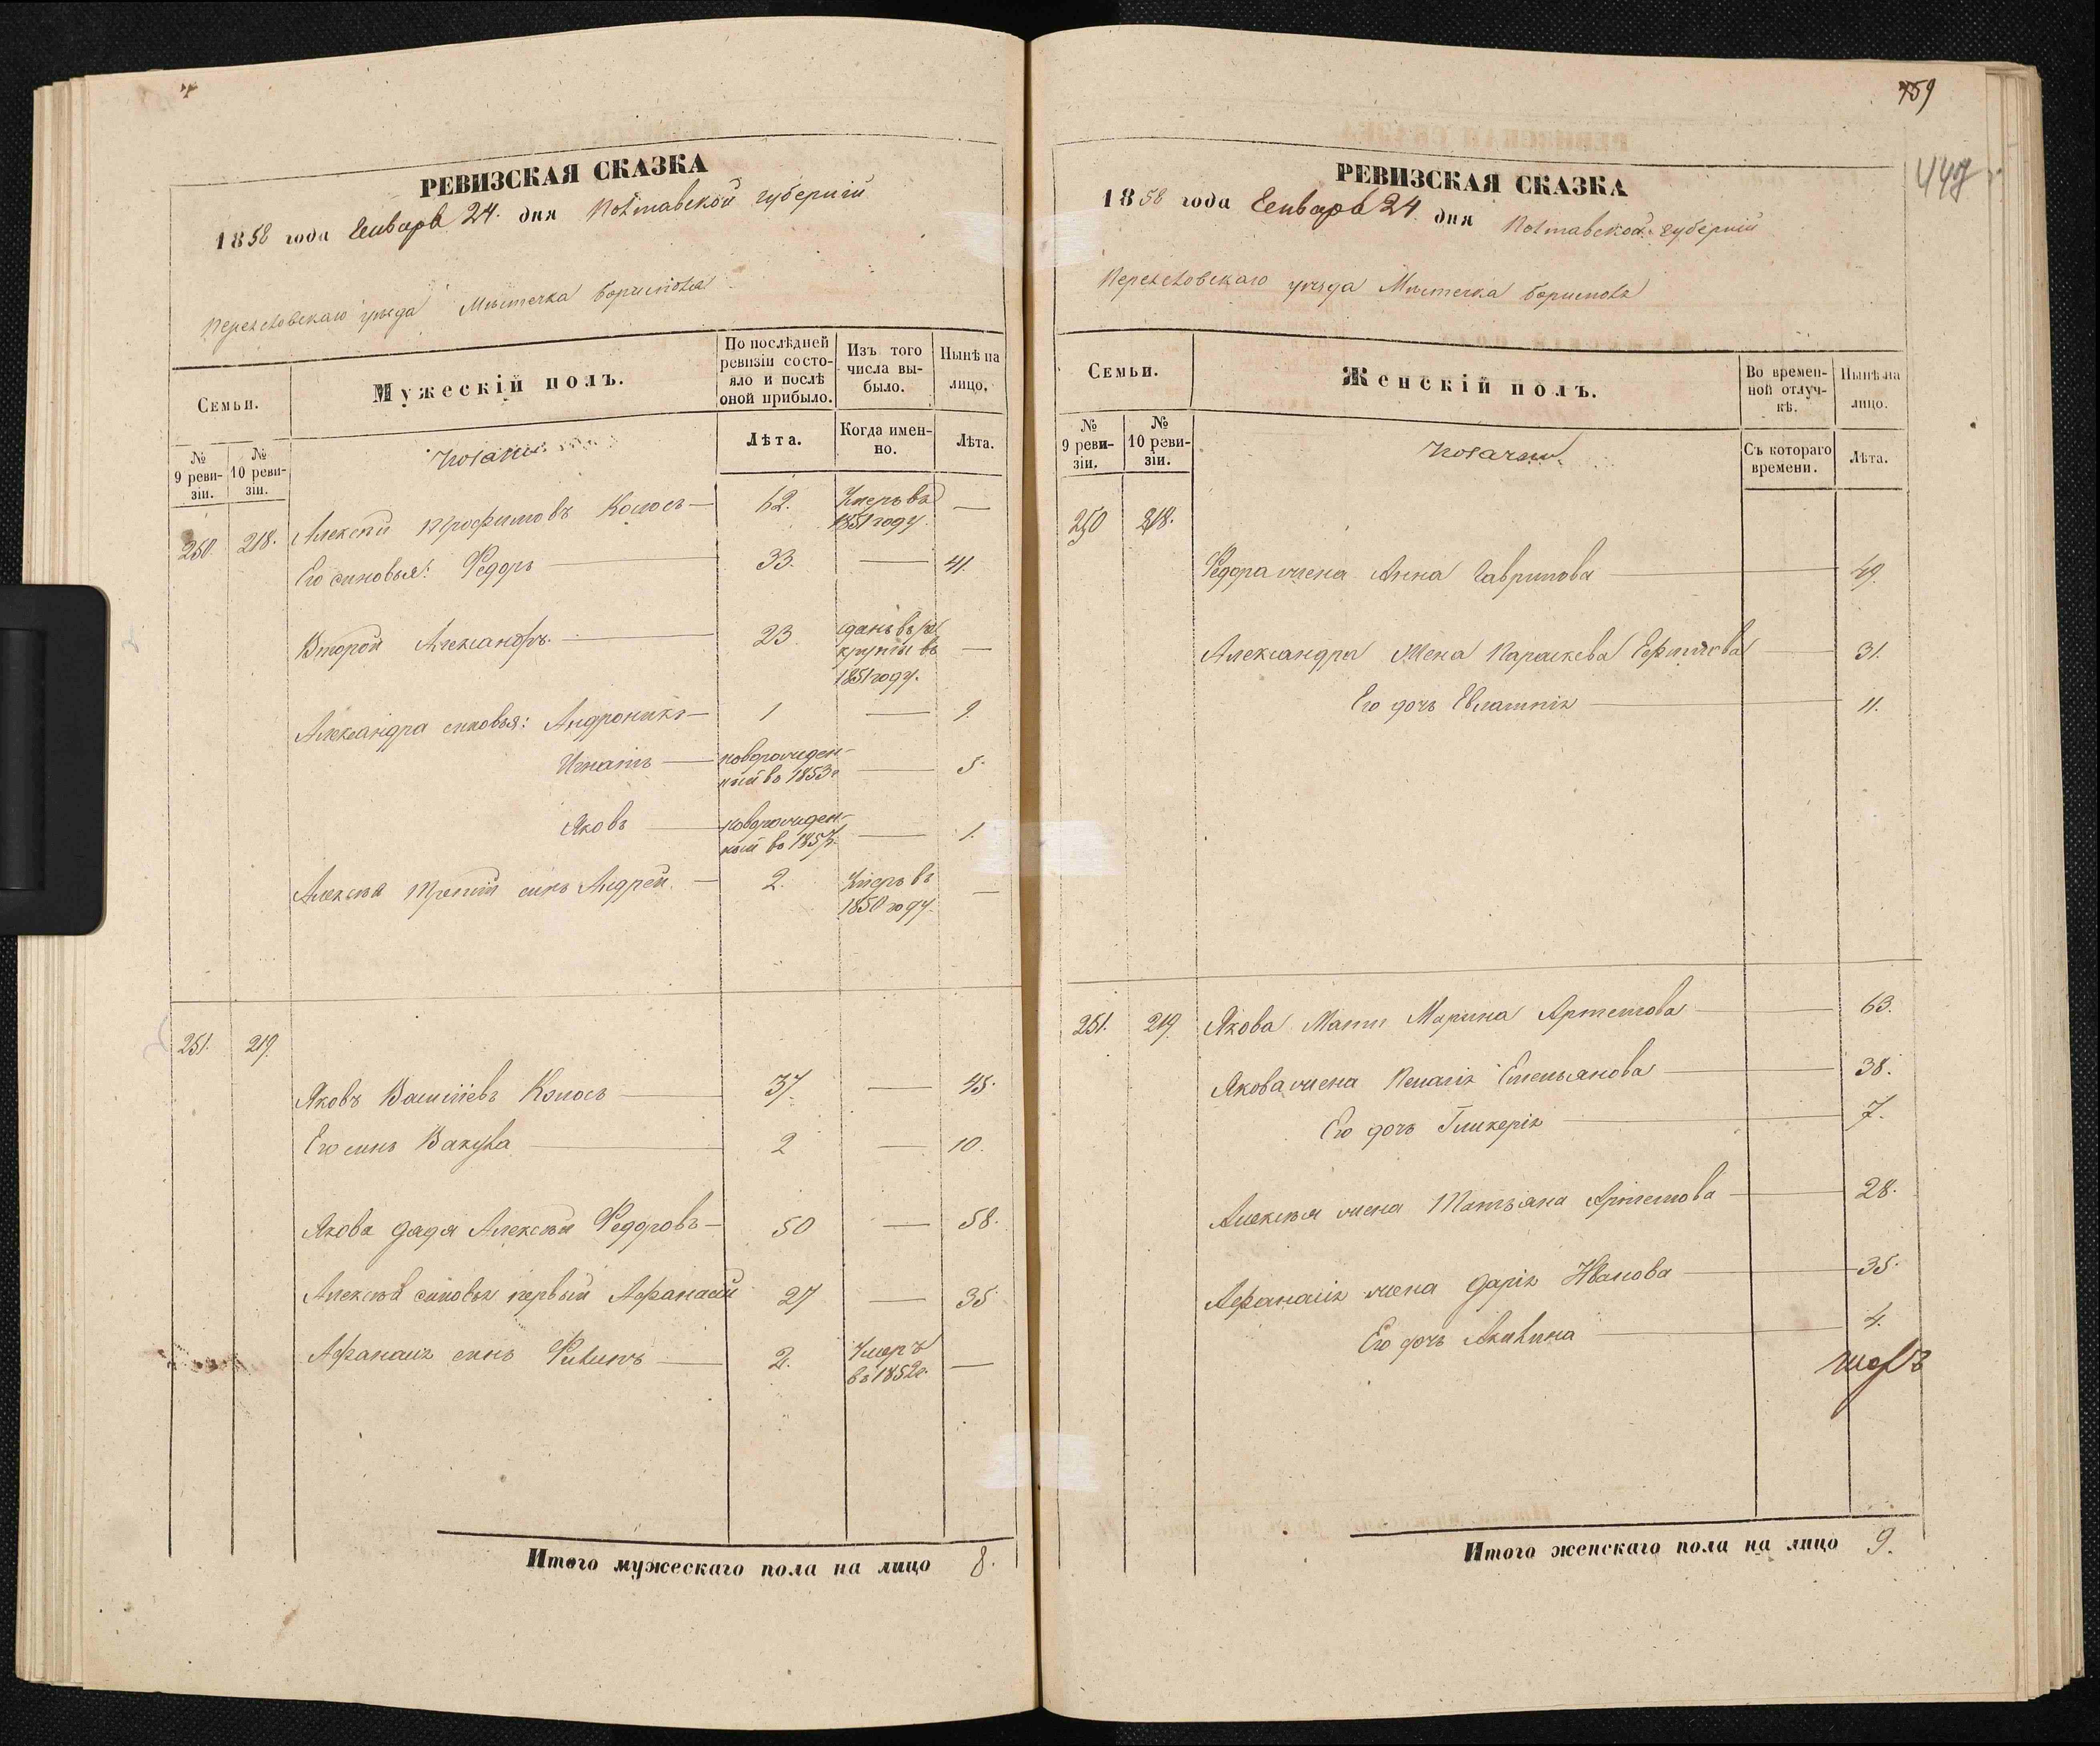 РЕВИЗСКАЯ СКАЗКА
1858 года Генваря 24. дня Полтавской губерніи
уезда Мистечка Борисполя
Семьи.
Мужескій полъ.
По послѣдней ревизіи состо-
яло и послѣ оной прибыло.
Изъ того числа вы-
было.
Нынѣ на лицо.
№ 9 реви-
зіи.
№ 10 реви-
зіи.
Лѣта.
Когда имен-
но.
Лѣта.
250. 218. Алексѣй Трофимовъ Колосъ — 62. Умеръ въ 1851 году. —
Его сыновья: Федоръ — 33. — 41.
Второй Александръ. — 23 сданъ въ ре
круты въ 1851 году. —
Александра сыновья: Андроникъ — 1 — 9.
Игнатъ — новорожден-
ный въ 1853 г — 5.
Яковъ — новорожден-
ный въ 1857. — 1.
Алексѣя третій сынъ Андрей. — 2. Умеръ въ 1850 году. —
251. 219.
Яковъ Колосъ — 37. — 45.
Его сынъ Вакула — 2 — 10.
Якова дядя Алексѣй Федоровъ — 50 — 58.
Алексѣя сыновья первый Афанасій 27 — 35
Афанасія сынъ Филипъ — 2. Умеръ въ 1852 г. —
Итого мужескаго пола на лицо 8.
759
РЕВИЗСКАЯ СКАЗКА
1858 года Генваря 24. дня Полтавской губерніи
уезда Мистечка Борисполя
Семьи.
Женскій полъ.
Во времен-
ной отлуч-
кѣ.
Нынѣ на лицо.
№ 9 реви-
зіи.
№ 10 реви-
зіи.
Съ котораго времени.
Лѣта.
250 218.
Федора жена Анна Гаврилова — 49.
Александра жена Параскева — 31.
Его дочь Евлампія — 11.
251. 219. Якова Мати Марина Артемова — 63.
Якова жена Пелагія Емельянова — 38.
Его дочь Гликерія — 7.
Алексѣя жена Татьяна Артемова — 28.
Афанасія жена Дарія Иванова — 35.
Его дочь Акилина — 4.
Итого женскаго пола на лицо 9.